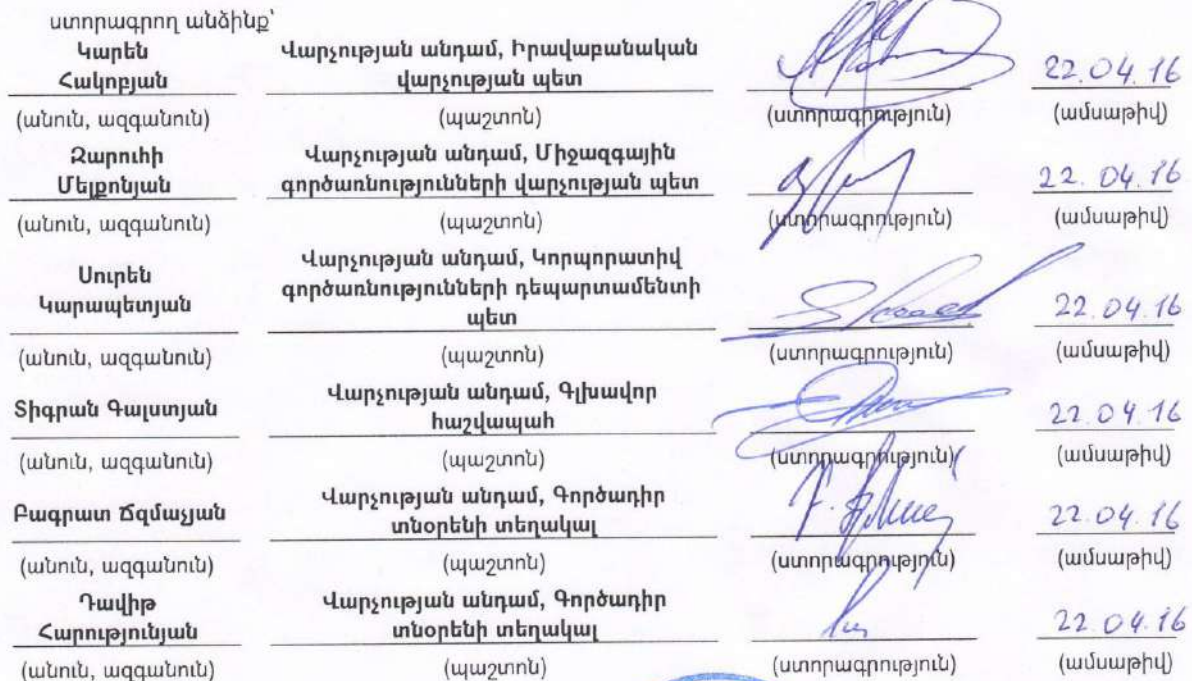 ստորագրող անձինք՝
Կարեն Վարչության անդամ, Իրավաբանական
Հակոբյան վարչության պետ 22.04.16
(անուն, ազգանուն) (պաշտոն) (ստորագրություն) (ամսաթիվ)
Զարուհի Վարչության անդամ, Միջազգային
Մելքոնյան գործառնությունների վարչության պետ 22.04.16
(անուն, ազգանուն) (պաշտոն) (ստորագրություն) (ամսաթիվ)
Վարչության անդամ, Կորպորատիվ
Սուրեն գործառնությունների դեպարտամենտի
Կարապետյան պետ 22.04.16
(անուն, ազգանուն) (պաշտոն) (ստորագրություն) (ամսաթիվ)
Տիգրան Գալստյան Վարչության անդամ, Գլխավոր
հաշվապահ 22.04.16
(անուն, ազգանուն) (պաշտոն) (ստորագրություն) (ամսաթիվ)
Բագրատ Ճզմաչյան Վարչության անդամ, Գործադիր
տնօրենի տեղակալ 22.04.16
(անուն, ազգանուն) (պաշտոն) (ստորագրություն) (ամսաթիվ)
Դավիթ Վարչության անդամ, Գործադիր
Հարությունյան տնօրենի տեղակալ 22.04.16
(անուն, ազգանուն) (պաշտոն) (ստորագրություն) (ամսաթիվ)